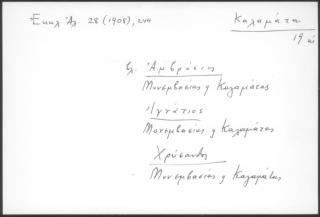 Ἐκκλ Ἀλ. 28 (1908), 244
Καλαμάτα
19 αἰ
βλ. Ἀμβρόσιος
Μονεμβασίας ἤ Καλαμάτας
Ἰγνάτιος
Μονεμβασίας ἤ Καλαμάτας
Χρύσανθος
Μονεμβασίας ἤ Καλαμάτας